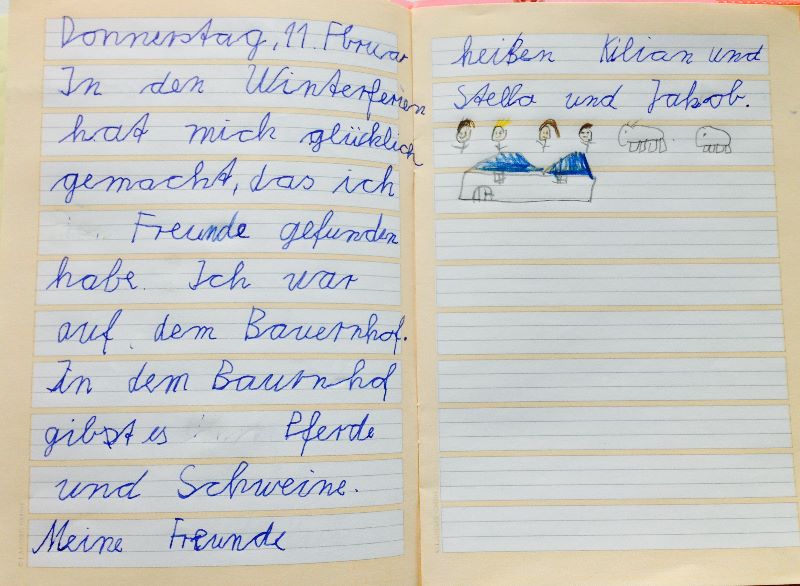 Donnerstag, 11. Fbruar
In den Winterferien
hat mich glücklich
gemacht, das ich
Freunde gefunden
habe. Ich war
auf dem Bauernhof.
In dem Baurnhof
gibst es Pferde
und Schweine.
Meine Freunde
heißen Kilian und
Stella und Jakob.